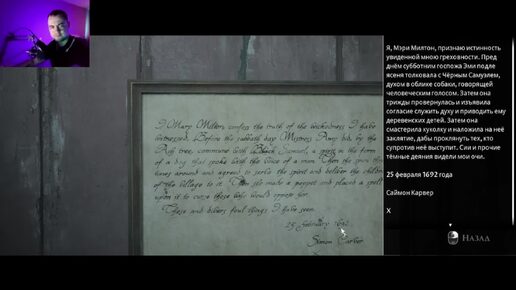 I, Mary Milton, confess the truth of the wickedness I have
witnessed. Before the sabbath day Mistress Amy did, by the
Ash tree, commune with Black Samuel, a spirit in the form
of a dog that spoke with the voice of a man. Then she spun
three around and agreed to serve the spirit and deliver the children
of the village to it. Then she made a poppet and placed a spell
upon it to curse those who would oppose her.
These and divers foul things I have seen.
25 February 1692
Simon Carver
Я, Мэри Милтон, признаю истинность
увиденной мною греховности. Пред
днём субботним госпожа Эми подле
ясеня толковала с Чёрным Самуэлем,
духом в облике собаки, говорящей
человеческим голосом. Затем она
трижды провернулась и изъявила
согласие служить духу и приводить ему
деревенских детей. Затем она
смастерила куколку и наложила на неё
заклятие, дабы проклянуть тех, кто
супротив неё выступит. Сии и прочие
тёмные деяния видели мои очи.
25 февраля 1692 года
Саймон Карвер
X
Назад